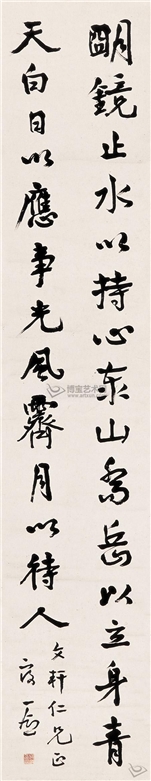 朙鏡止水以持心泰山喬岳以立身青
天白日以應事光風霽月以待人
文軒仁兄正
博宝艺术网
www.artxun.com